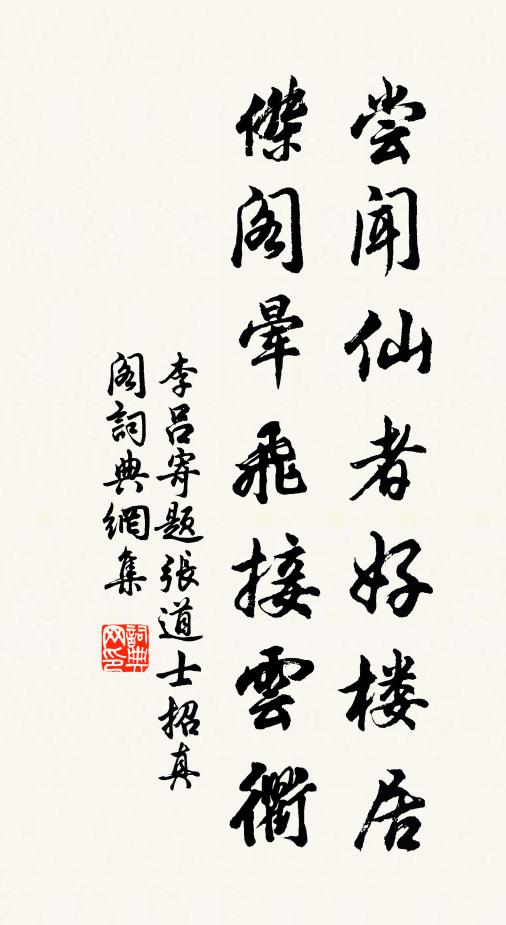 尝闻仙者好楼居
傑阁晕飛接雲衢
李吕寄题張道士招真
阁詞典網集
詞典网印